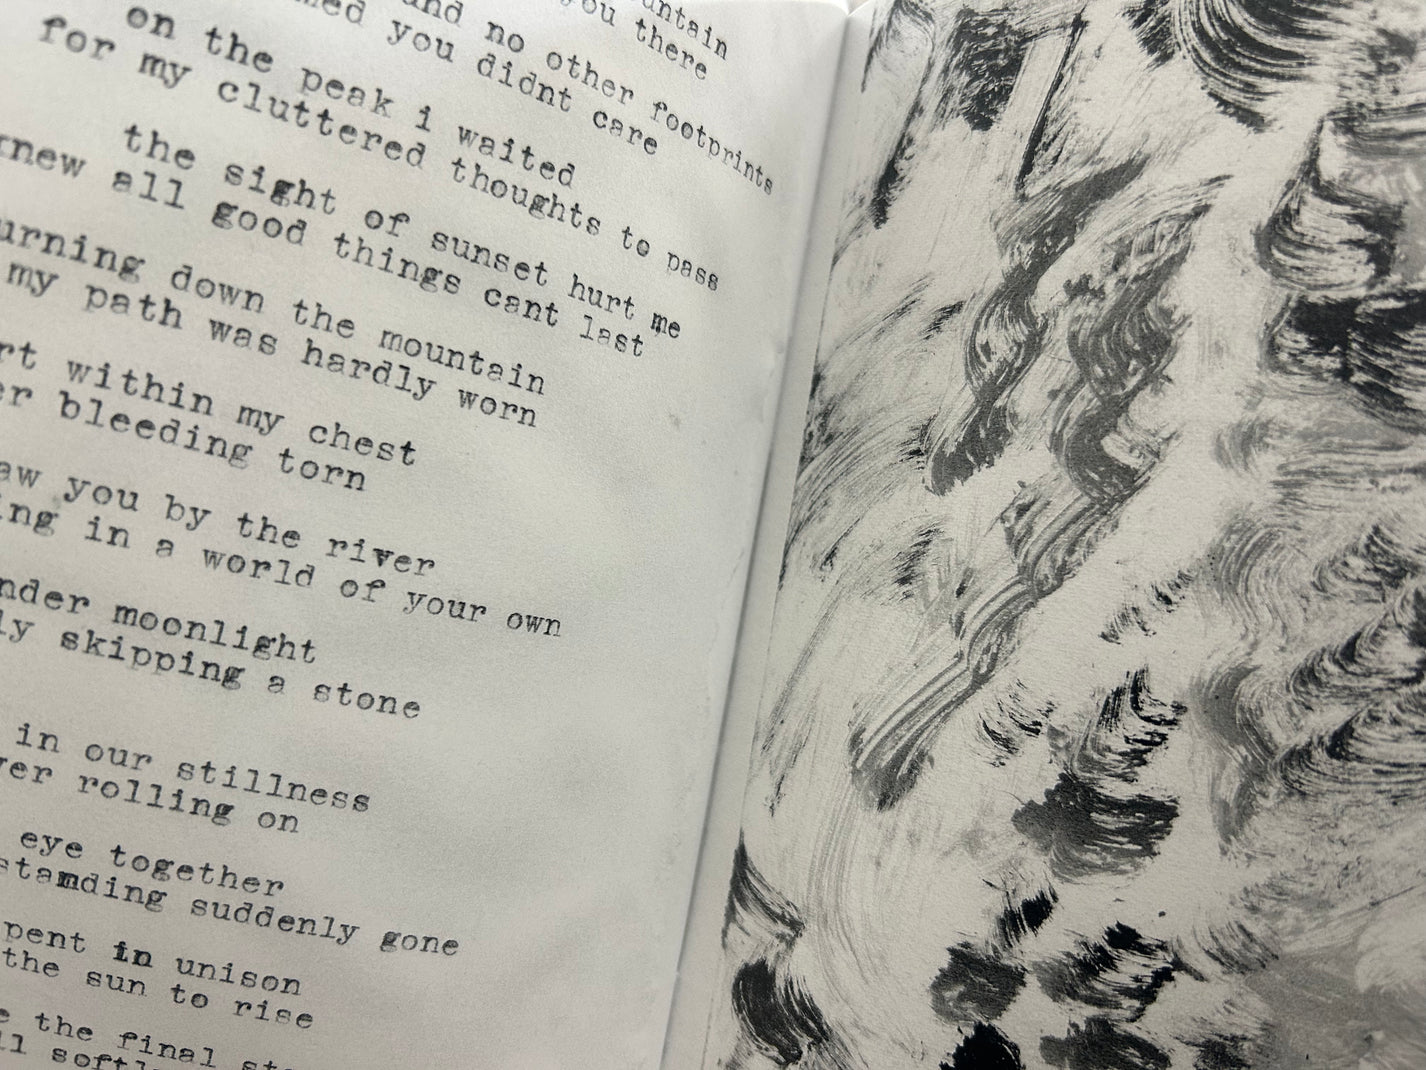 you there
and no other footprints
you didnt care
on the peak i waited
for my cluttered thoughts to pass
the sight of sunset hurt me
knew all good things cant last
down the mountain
my path was hardly worn
within my chest
bleeding torn
you by the river
in a world of your own
moonlight
skipping a stone
in our stillness
rolling on
eye together
suddenly gone
in unison
the sun to rise
the final